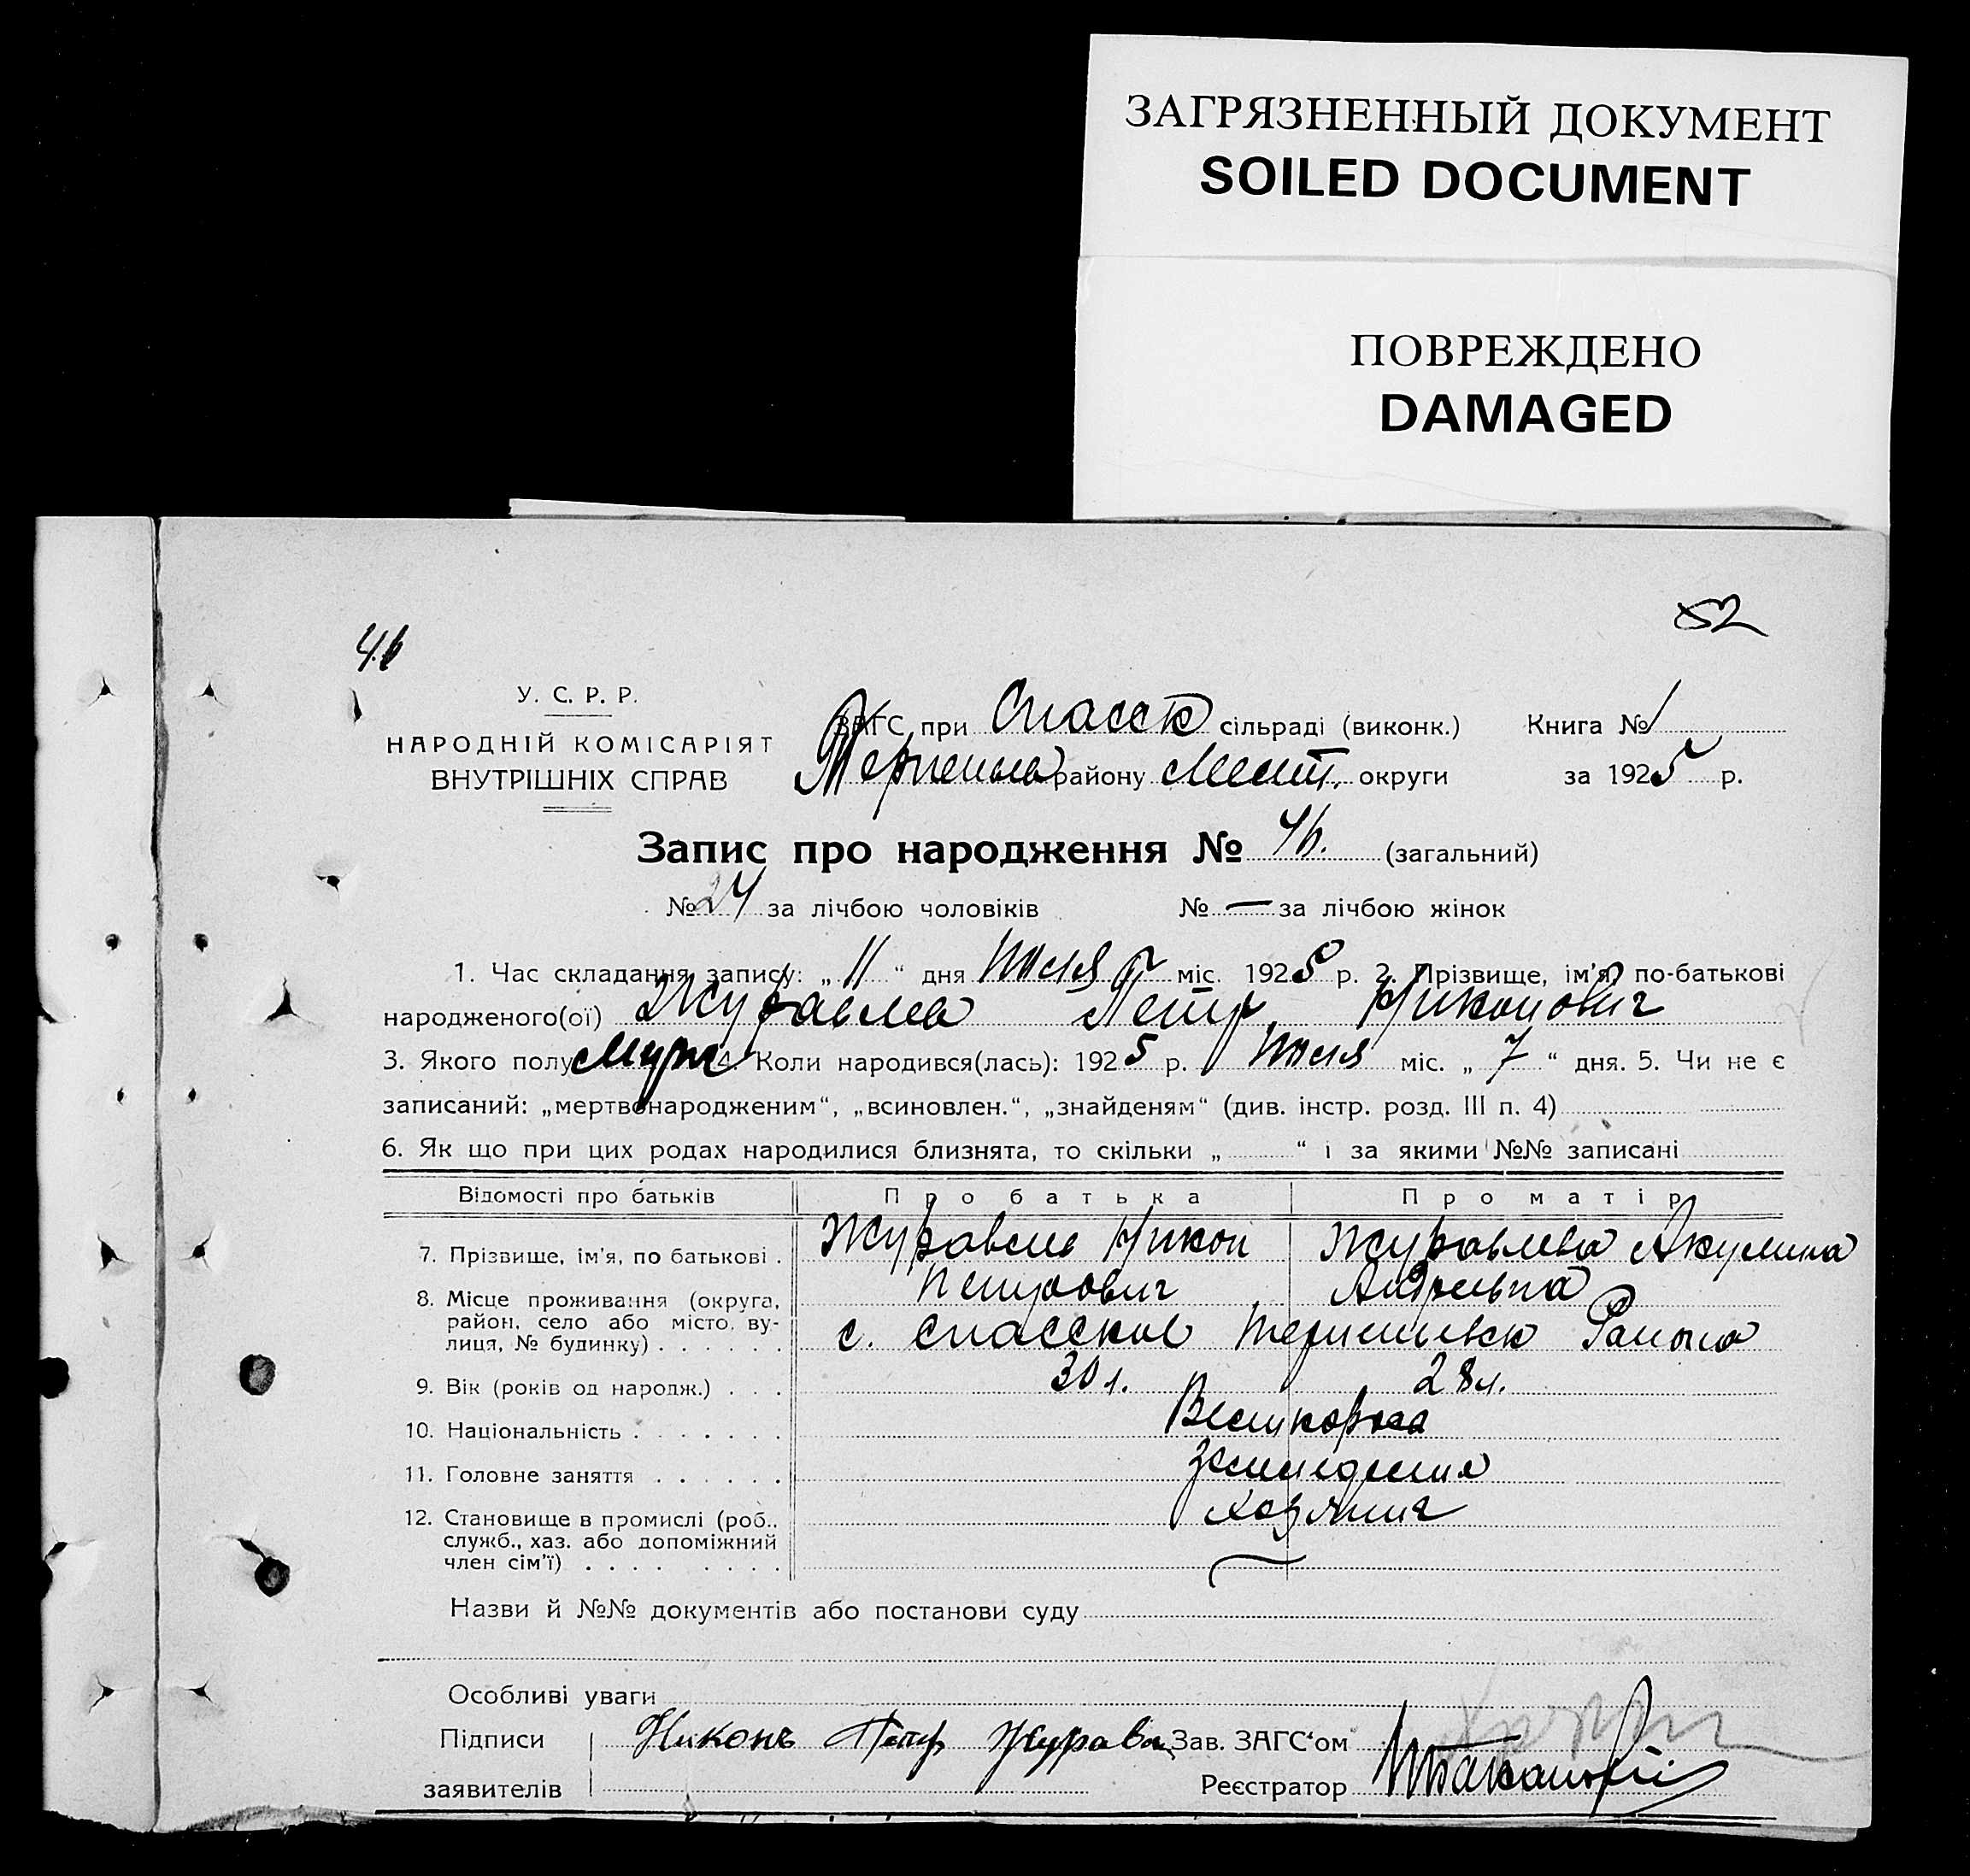 ЗАГРЯЗНЕННЫЙ ДОКУМЕНТ
SOILED DOCUMENT
ПОВРЕЖДЕНО
DAMAGED
52
46
У. С. Р. Р.
НАРОДНІЙ КОМІСАРІЯТ
ВНУТРІШНІХ СПРАВ
ЗАГС при Спасск сільраді (виконк.) Книга № 1
району Мелит. округи за 1925 р.
Запис про народження № 46. (загальний)
№ 24 за лічбою чоловіків № — за лічбою жінок
1. Час складання запису: „ 11 “ дня Июля міс. 1925 р. 2. Прізвище, ім'я, по-батькові
народженого(ої) Журавлев Петр Никонович
3. Якого полу Муж 4. Коли народився(лась): 1925 р. Июля міс. „ 7 “ дня. 5. Чи не є
записаний: „мертвонародженим“, „всиновлен.“, „знайденям“ (див. інстр. розд. III п. 4)
6. Як що при цих родах народилися близнята, то скільки „ “ і за якими №№ записані
Відомості про батьків Про батька Про матір
7. Прізвище, ім'я, по батькові . Журавлев Никон Журавлева Акулина
Петрович Андреевна
8. Місце проживання (округа,
район, село або місто, ву-
лиця, № будинку) . . . . . . с. Спасское Района
9. Вік (років од народж.) . . . 30 л. 28 л.
10. Національність . . . . . . . Великорос
11. Головне заняття . . . . . . земледелия
12. Становище в промислі (роб., хозяин
служб., хаз. або допоміжний
член сім'ї) . . . . . . . . .
Назви й №№ документів або постанови суду
Особливі уваги
Підписи Никонъ Петр Зав. ЗАГС‘ом
заявителів Реєстратор